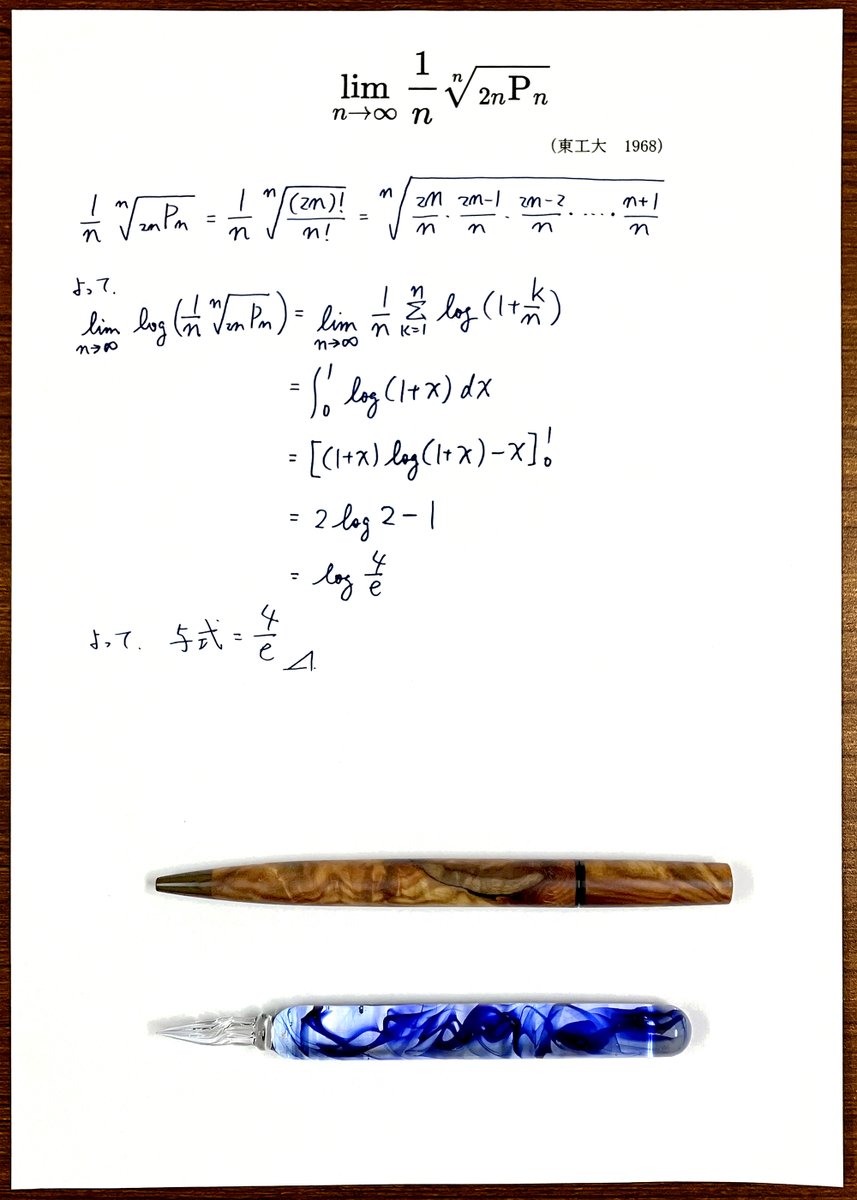 lim_{n→∞} 1/n ⁿ√(₂ₙPₙ)
(東工大　1968)
1/n ⁿ√(₂ₙPₙ) = 1/n ⁿ√((2n)!/n!) = ⁿ√(2n/n · 2n-1/n · 2n-2/n · ···· · n+1/n)
よって.
lim_{n→∞} log(1/n ⁿ√(₂ₙPₙ)) = lim_{n→∞} 1/n Σ_{k=1}^{n} log(1+k/n)
= ∫₀¹ log(1+x) dx
= [(1+x) log(1+x) - x]₀¹
= 2 log 2 - 1
= log 4/e
よって. 与式 = 4/e